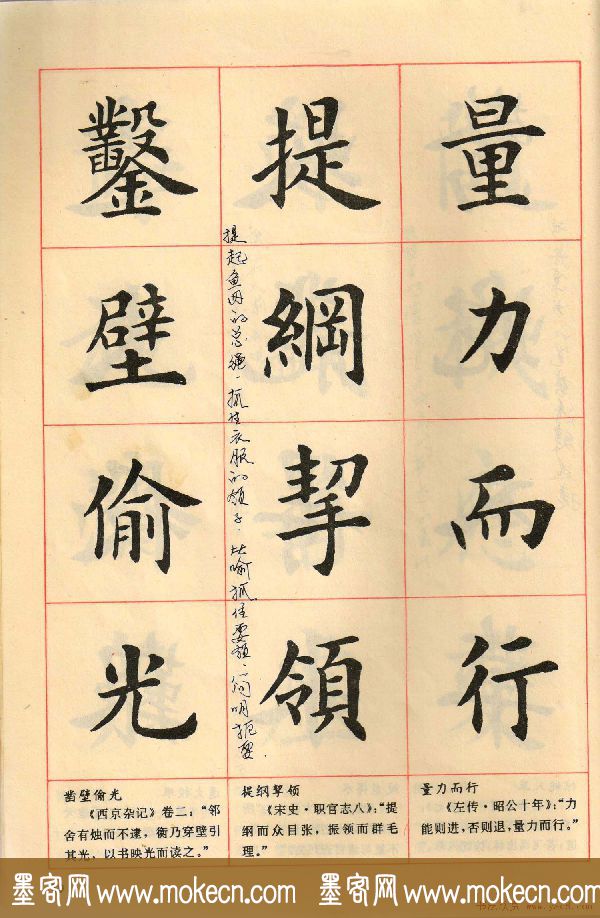 量力而行
提綱挈領
提起鱼网的总绳，抓住衣服的领子，比喻抓住要领，简明扼要。
鑿壁偷光
量力而行
《左传·昭公十年》：“力
能则进，否则退，量力而行。”
提纲挈领
《宋史·职官志八》：“提
纲而众目张，振领而群毛
理。”
凿壁偷光
《西京杂记》卷二：“邻
舍有烛而不逮，衡乃穿壁引
其光，以书映光而读之。”
墨客网 www.mokecn.com 墨客网 www.mokecn.com